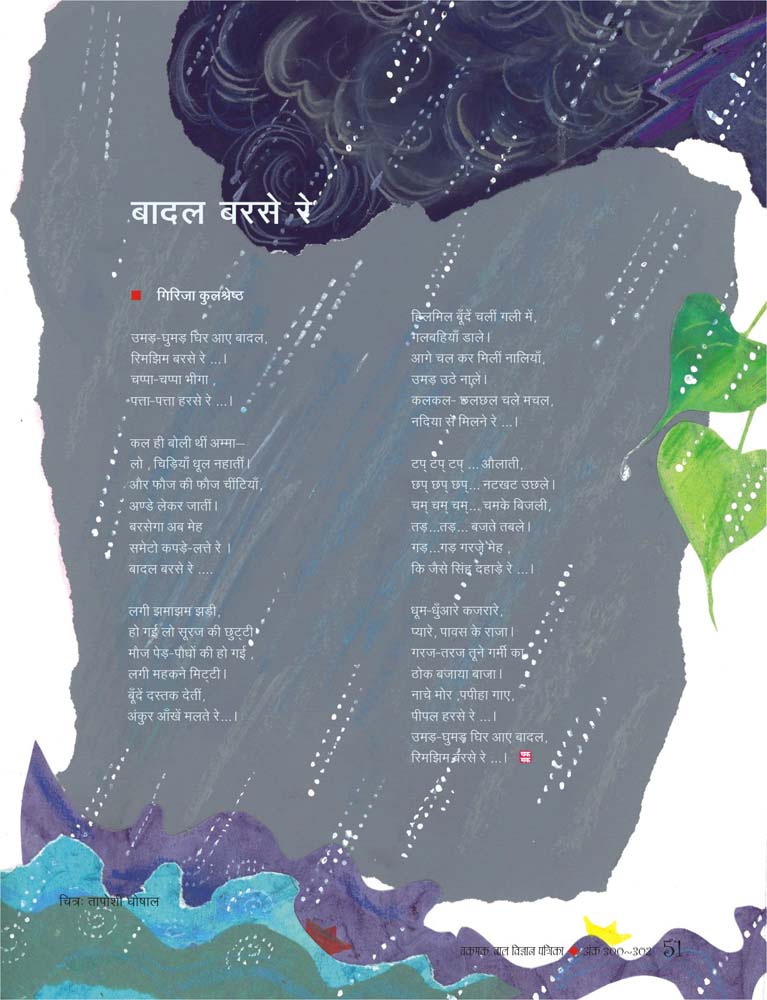 बादल बरसे रे
गिरिजा कुलश्रेष्ठ
उमड़-घुमड़ घिर आए बादल,
रिमझिम बरसे रे ...।
चप्पा-चप्पा भीगा ,
पत्ता-पत्ता हरसे रे ...।
कल ही बोली थीं अम्मा—
लो , चिड़ियाँ धूल नहातीं।
और फौज की फौज चींटियाँ,
अण्डे लेकर जातीं।
बरसेगा अब मेह
समेटो कपड़े-लत्ते रे ।
बादल बरसे रे ....
लगी झमाझम झड़ी,
हो गई लो सूरज की छुट्टी
मौज पेड़-पौधों की हो गई ,
लगी महकने मिट्टी।
बूँदें दस्तक देतीं,
अंकुर आँखें मलते रे...।
हिलमिल बूँदें चलीं गली में,
गलबहियाँ डाले।
आगे चल कर मिलीं नालियाँ,
उमड़ उठे नाले।
कलकल- छलछल चले मचल,
नदिया से मिलने रे ...।
टप् टप् टप् ... औलाती,
छप् छप् छप्... नटखट उछले।
चम् चम् चम्... चमके बिजली,
तड़...तड़... बजते तबले।
गड़...गड़ गरजे मेह ,
कि जैसे सिंह दहाड़े रे ...।
धूम-धुँआरे कजरारे,
प्यारे, पावस के राजा।
गरज-तरज तूने गर्मी का
ठोक बजाया बाजा।
नाचे मोर ,पपीहा गाए,
पीपल हरसे रे ...।
उमड़-घुमड़ घिर आए बादल,
रिमझिम बरसे रे ...।
चक
मक
चित्रः तापोशी घोषाल
चकमक बाल विज्ञान पत्रिका ◆ अंक 300~302 51